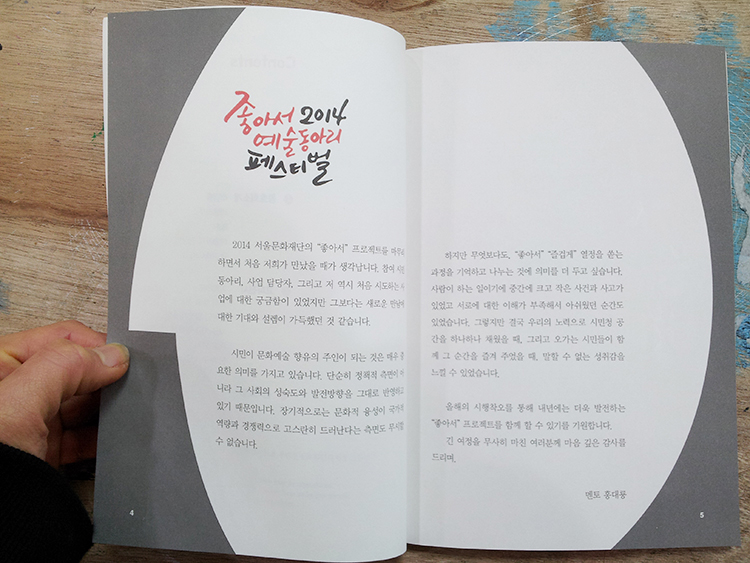 좋아서 2014
예술동아리
페스티벌
2014 서울문화재단의 "좋아서" 프로젝트를
하면서 처음 저희가 만났을 때가 생각납니다. 참여
동아리, 사업 담당자, 그리고 저 역시 처음 시도하는
업에 대한 궁금함이 있었지만 그보다는 새로운 만남에
대한 기대와 설렘이 가득했던 것 같습니다.
시민이 문화예술 향유의 주인이 되는 것은 매우 중
요한 의미를 가지고 있습니다. 단순히 정책적 측면이 아
니라 그 사회의 성숙도와 발전방향을 그대로 반영하고
있기 때문입니다. 장기적으로는 문화적 융성이 국가적
역량과 경쟁력으로 고스란히 드러난다는 측면도 무시할
수 없습니다.
4
하지만 무엇보다도, "좋아서" "즐겁게" 열정을 쏟는
과정을 기억하고 나누는 것에 의미를 더 두고 싶습니다.
사람이 하는 일이기에 중간에 크고 작은 사건과 사고가
있었고 서로에 대한 이해가 부족해서 아쉬웠던 순간도
있었습니다. 그렇지만 결국 우리의 노력으로 시민청 공
간을 하나하나 채웠을 때, 그리고 오가는 시민들이 함
께 그 순간을 즐겨 주었을 때, 말할 수 없는 성취감을
느낄 수 있었습니다.
올해의 시행착오를 통해 내년에는 더욱 발전하는
"좋아서" 프로젝트를 함께 할 수 있기를 기원합니다.
긴 여정을 무사히 마친 여러분께 마음 깊은 감사를
드리며,
멘토 홍대룡
5